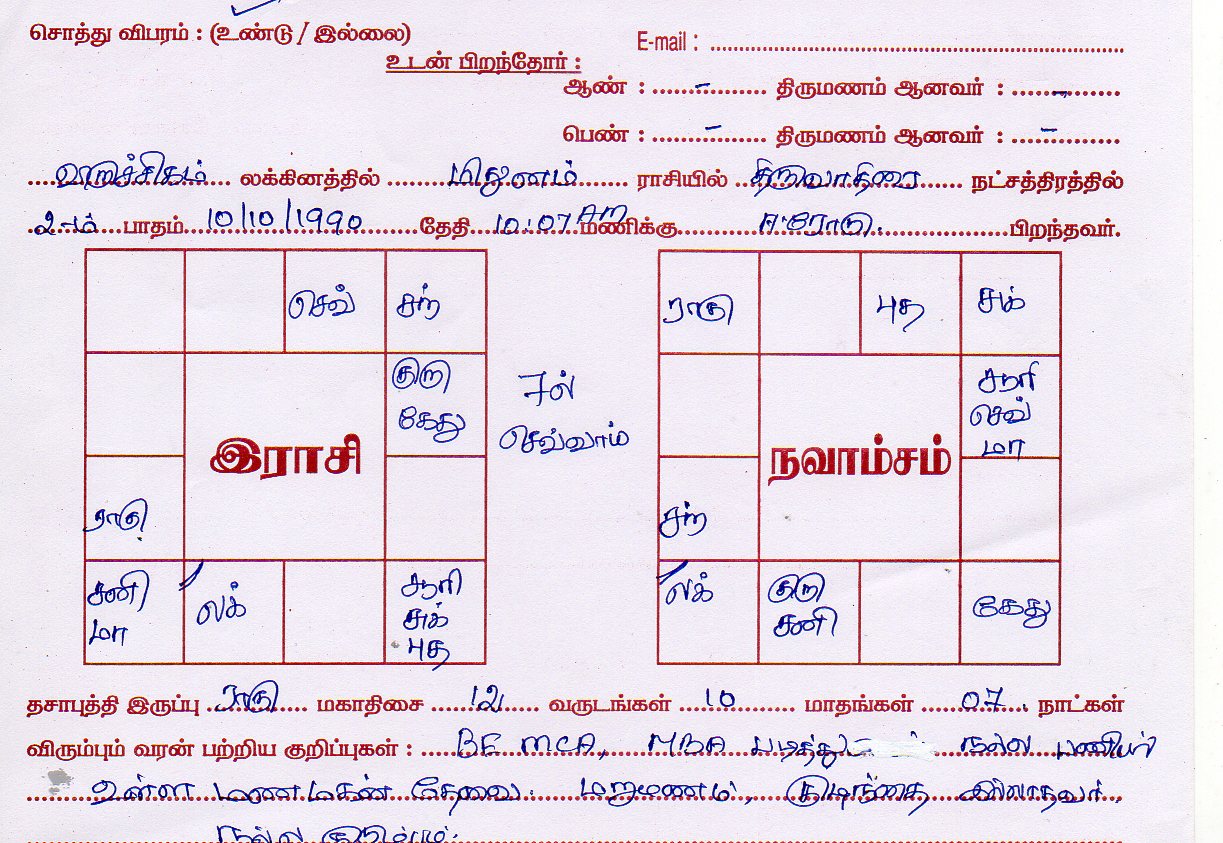 சொத்து விபரம் : (உண்டு / இல்லை)
E-mail : ..........
உடன் பிறந்தோர் :
ஆண் : ......-...... திருமணம் ஆனவர் : ......-......
பெண் : ......-...... திருமணம் ஆனவர் : ......-......
விருச்சிகம் லக்கினத்தில் மிதுனம் ராசியில் திருவாதிரை நட்சத்திரத்தில்
2-ம் பாதம் 10/10/1990 தேதி 10.07 AM மணிக்கு ஈரோடு. பிறந்தவர்.
செவ் சந்
குரு
கேது
ராகு
சனி
மா
லக்
சூரி
சுக்
புத
இராசி
7ல்
செவ்வாய்
ராகு புத சுக்
சூரி
செவ்
மா
சந்
லக்
குரு
சனி
கேது
நவாம்சம்
தசாபுத்தி இருப்பு ராகு மகாதிசை 12 வருடங்கள் 10 மாதங்கள் 07 நாட்கள்
விரும்பும் வரன் பற்றிய குறிப்புகள் : BE MCA, MBA படித்து நல்ல பணியில்
உள்ள மணமகன் தேவை. மறுமணம், குழந்தை இல்லாதவர்,
நல்ல குடும்பம்.